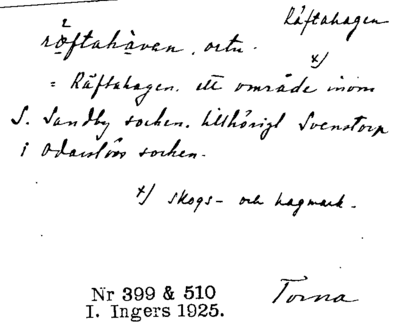 Räftahagen
röftahàven, ortn.
x)
= Räftahagen, ett område inom
S. Sandby socken, tillhörigt Svenstorp
i Odarslövs socken.
x) skogs- och hagmark.
Nr 399 & 510
I. Ingers 1925.
Torna